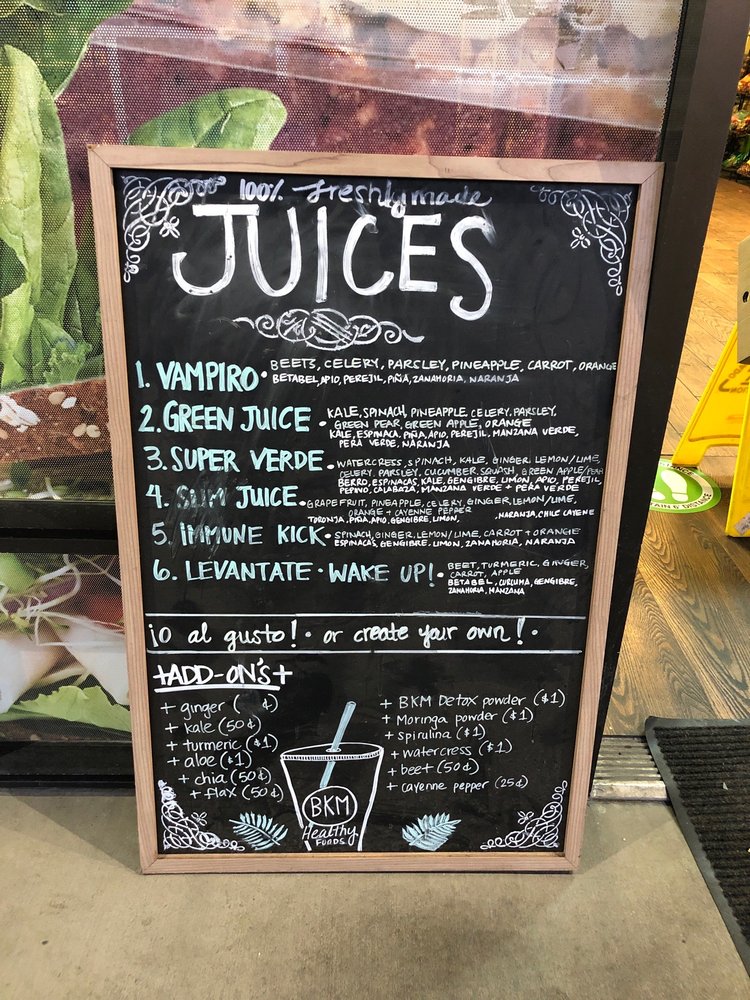 100% freshly made
JUICES
1. VAMPIRO · BEETS, CELERY, PARSLEY, PINEAPPLE, CARROT, ORANGE
BETABEL, APIO, PEREJIL, PIÑA, ZANAHORIA, NARANJA
2. GREEN JUICE · KALE, SPINACH, PINEAPPLE, CELERY, PARSLEY,
GREEN PEAR, GREEN APPLE, ORANGE
KALE, ESPINACA, PIÑA, APIO, PEREJIL, MANZANA VERDE,
PERA VERDE, NARANJA
3. SUPER VERDE · WATERCRESS, SPINACH, KALE, GINGER, LEMON/LIME,
CELERY, PARSLEY, CUCUMBER, SQUASH, GREEN APPLE/PEAR
BERRO, ESPINACAS, KALE, GENGIBRE, LIMON, APIO, PEREJIL,
PEPINO, CALABAZA, MANZANA VERDE + PERA VERDE
4. SLIM JUICE · GRAPEFRUIT, PINEAPPLE, CELERY, GINGER, LEMON/LIME,
ORANGE + CAYENNE PEPPER
TORONJA, PIÑA, APIO, GENGIBRE, LIMON, , NARANJA, CHILE CAYENE
5. IMMUNE KICK · SPINACH, GINGER, LEMON/LIME, CARROT + ORANGE
ESPINACAS, GENGIBRE, LIMON, ZANAHORIA, NARANJA
6. LEVANTATE · WAKE UP! · BEET, TURMERIC, GINGER,
CARROT, APPLE
BETABEL, CURCUMA, GENGIBRE,
ZANAHORIA, MANZANA
¡O al gusto! · or create your own! ·
+ADD-ON'S+
+ ginger ( ¢)
+ kale (50¢)
+ turmeric ($1)
+ aloe ($1)
+ chia (50¢)
+ flax (50¢)
+ BKM Detox powder ($1)
+ Moringa powder ($1)
+ spirulina ($1)
+ watercress ($1)
+ beet (50¢)
+ cayenne pepper (25¢)
BKM
Healthy
FOODS
DISTANCE